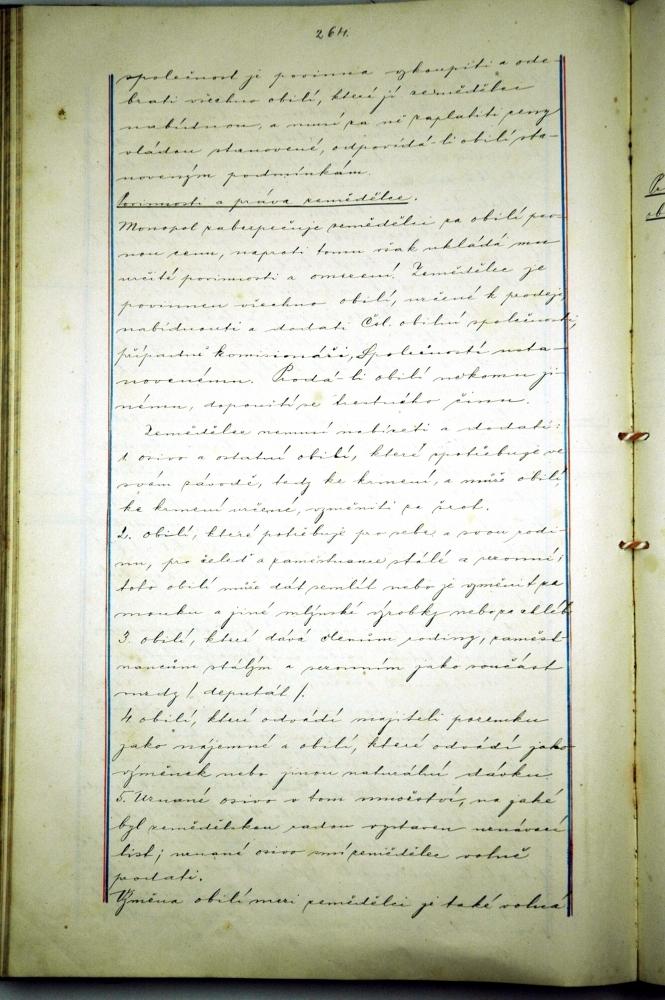 264.
společnost je povinna vykoupiti a ode-
brati všechno obilí, které jí zemědělec
nabídnou, a musí za ně zaplatiti ceny
vládou stanovené, odpovídá-li obilí sta-
noveným podmínkám.
Povinnosti a práva zemědělce.
Monopol zabezpečuje zemědělci za obilí pev-
nou cenu, naproti tomu však ukládá mu
určité povinnosti a omezení. Zemědělec je
povinnen všechno obilí, určené k prodeji,
nabídnouti a dodati Čsl. obilní společnosti,
případně komisionáři, Společností usta-
novenému. Prodá-li obilí někomu ji-
nému, dopouští se trestného činu.
Zemědělec nemusí nabízeti a dodati:
1 osivo a ostatní obilí, které spotřebuje ve
svém závodě, tedy ke krmení, a může obilí,
ke krmení určené, vyměniti za šrot.
2. obilí, které potřebuje pro sebe a svou rodi-
nu, pro čeleď a zaměstnance stálé a sezonní;
toto obilí může dát semlít nebo je vyměnit za
mouku a jiné mlýnské výrobky nebo za chléb
3. obilí, které dává členům rodiny, zaměst-
nancům stálým a sezonním jako součást
mzdy /deputát/.
4 obilí, které odvádí majiteli pozemku
jako nájemné a obilí, které odvádí jako
výměnek nebo jinou naturální dávku.
5. Uznané osivo v tom množství, na jaké
byl zemědělskou radou vystaven uznávací
list; uznané osivo smí zemědělec volně
prodati.
Výměna obilí mezi zemědělci je také volná